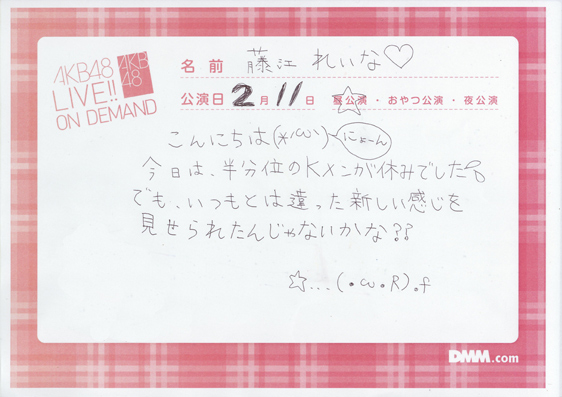 AKB48
LIVE!!
ON DEMAND
AKB
48
名前 藤江 れいな♡
公演日 2月11日 昼公演・おやつ公演・夜公演
こんにちは(*'ω') にょーん
今日は、半分位のKメンが休みでした
でも、いつもとは違った新しい感じを
見せられたんじゃないかな??
☆...(・ω・R).f
DMM.com